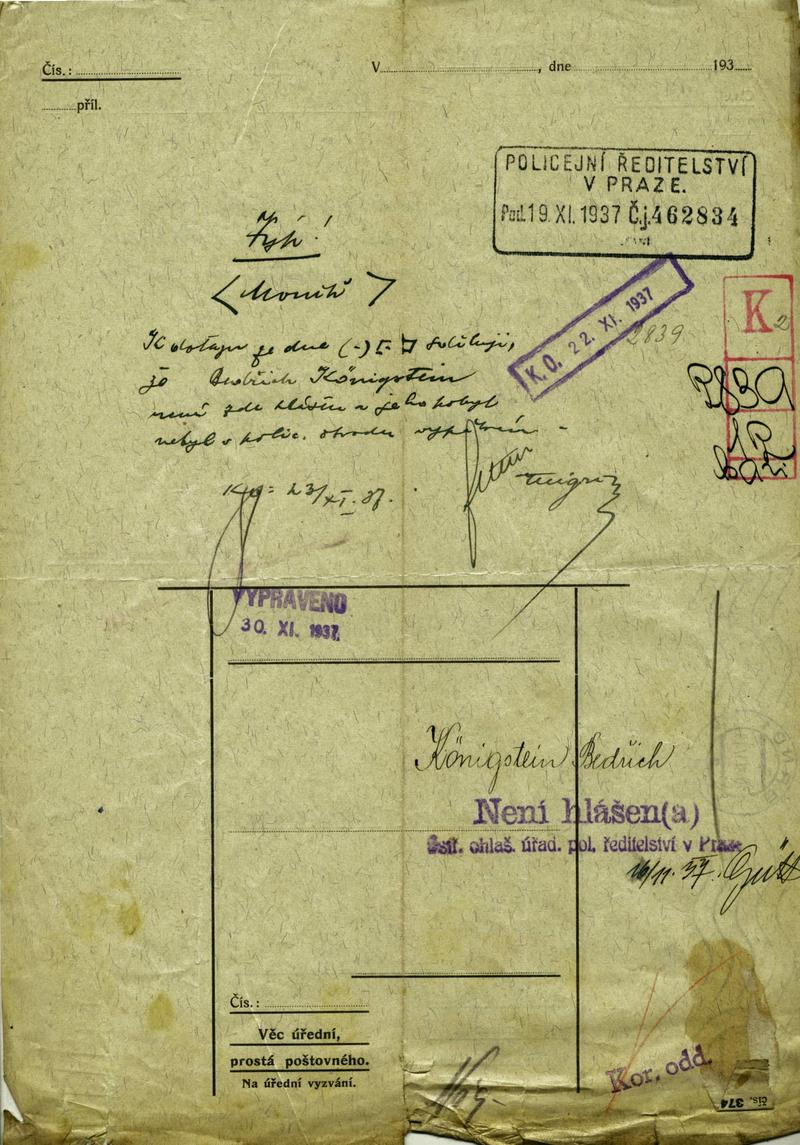 Čís.:
V , dne 193
příl.
POLICEJNÍ ŘEDITELSTVÍ
V PRAZE.
Pod. 19. XI. 1937 Č.j. 462834
K.O. 22. XI. 1937
K 2
2839
2839
K dotazu ze dne (-) sděluji,
že Bedřich Königstein
není zde hlášen a jeho pobyt
nebyl v polic. obvodu
23/XI. 37.
VYPRAVENO
30. XI. 1937
Königstein Bedřich
Není hlášen(a)
Ústř. ohlaš. úřad. pol. ředitelství v Praze
16/11. 37.
Čís.:
Věc úřední,
prostá poštovného.
Na úřední vyzvání.
Kor. odd.
Čís. 374